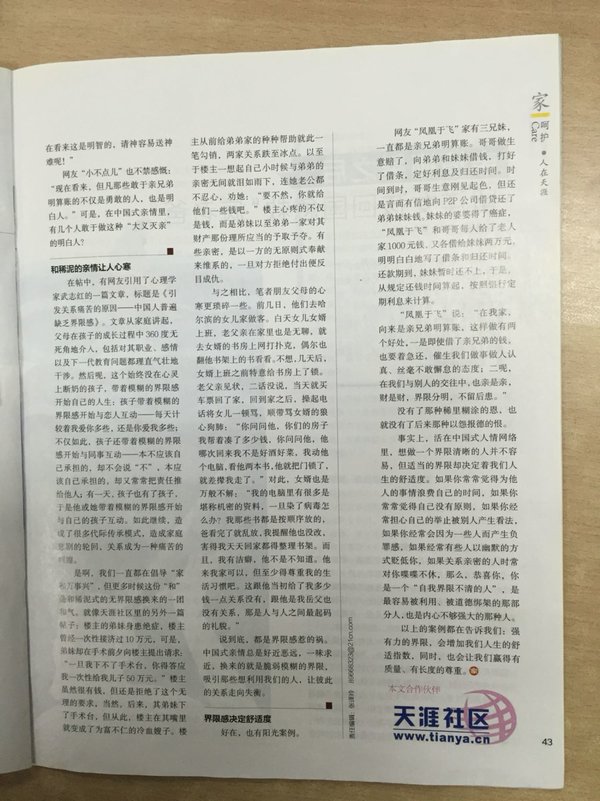 家
呵护
Care
人在天涯
在看来这是明智的，请神容易送神
难呢！”
网友“小不点儿”也不禁感慨：
“现在看来，但凡那些敢于亲兄弟
明算账的不仅是勇敢的人，也是明
白人。”可是，在中国式亲情里，
有几个人敢于做这种“大义灭亲”
的明白人？
和稀泥的亲情让人心寒
在帖中，有网友引用了心理学
家武志红的一篇文章，标题是《引
发关系痛苦的原因——中国人普遍
缺乏界限感》。文章从家庭讲起，
父母在孩子的成长过程中360度无
死角地介入，包括对其职业、感情
以及下一代教育问题都理直气壮地
干涉。然后呢，这个始终没在心灵
上断奶的孩子，带着模糊的界限感
开始自己的人生；孩子带着模糊的
界限感开始与恋人互动——每天计
较着我爱你多些，还是你爱我多些；
不仅如此，孩子还带着模糊的界限
感开始与同事互动——本不应该自
己承担的，却不会说“不”，本应
该自己承担的，却又常常把责任推
给他人；有一天，孩子也有了孩子，
于是他或她带着模糊的界限感开始
与自己的孩子互动。如此继续，造
成了很多代际传承模式，造成家庭
悲剧的轮回，关系成为一种痛苦的
是啊，我们一直都在倡导“家
和万事兴”，但更多时候这份“和”
是和稀泥式的无界限感换来的一团
和气。就像天涯社区里的另外一篇
帖子：楼主的弟妹身患绝症，楼主
曾经一次性接济过10万元，可是，
弟妹却在手术前夕向楼主提出请求：
“一旦我下不了手术台，你得答应
我一次性给我儿子50万元。”楼主
虽然很有钱，但还是拒绝了这个无
理的要求，当然，后来，其弟妹下
了手术台，但从此，楼主在其嘴里
就变成了为富不仁的冷血嫂子。楼
主从前给弟弟家的种种帮助就此一
笔勾销，两家关系跌至冰点。以至
于楼主一想起自己小时候与弟弟的
亲密无间就泪如雨下，连她老公都
不忍心，劝她：“要不然，你就给
他们一些钱吧。”楼主心疼的不仅
是钱，而是弟妹以至弟弟一家对其
财产那份理所应当的予取予夺。有
些亲密，是以一方的无原则式奉献
来维系的，一旦对方拒绝付出便反
目成仇。
与之相比，笔者朋友父母的心
寒更琐碎一些。前几日，他们去哈
尔滨的女儿家做客。白天女儿女婿
上班，老父亲在家里也是无聊，就
去女婿的书房上网打扑克，偶尔也
翻他书架上的书看看。不想，几天后，
女婿上班之前特意给书房上了锁。
老父亲见状，二话没说，当天就买
车票回了家，回到家之后，操起电
话将女儿一顿骂，顺带骂女婿的狼
心狗肺：“你问问他，你们的房子
我帮着凑了多少钱，你问问他，他
哪次回来我不是好酒好菜，我动他
个电脑，看他两本书，他就把门锁了，
就差撵我走了。”对此，女婿也是
万般不解：“我的电脑里有很多是
堪称机密的资料，一旦染了病毒怎
么办？我那些书都是按顺序放的，
爸看完了就乱放，我提醒他也没改，
害得我天天回家都得整理书架。而
且，我有洁癖，他不是不知道。他
来我家可以，但至少得尊重我的生
活习惯吧。这跟他当初给了我多少
钱一点关系没有，跟他是我岳父也
没有关系，那是人与人之间最起码
的礼貌。”
说到底，都是界限感惹的祸。
中国式亲情总是好近恶远，一味求
近，换来的就是脆弱模糊的界限，
吸引那些想利用我们的人，让彼此
的关系走向失衡。
界限感决定舒适度
好在，也有阳光案例。
网友“凤凰于飞”家有三兄妹，
一直都是亲兄弟明算账。哥哥做生
意赔了，向弟弟和妹妹借钱，打好
了借条，定好利息及归还时间。时
间到时，哥哥生意刚见起色，但还
是言而有信地向P2P公司借贷还了
弟弟妹妹钱。妹妹的婆婆得了癌症，
“凤凰于飞”和哥哥每人给了老人
家1000元钱，又各借给妹妹两万元，
明明白白地写了借条和归还时间。
还款期到，妹妹暂时还不上，于是，
从规定还钱时间算起，按照银行定
期利息来计算。
“凤凰于飞”说：“在我家，
向来是亲兄弟明算账，这样做有两
个好处，一是即使借了亲兄弟的钱，
也要着急还，催生我们做事做人认
真、丝毫不敢懈怠的态度；二呢，
在我们与别人的交往中，也亲是亲，
财是财，界限分明，不留后患。”
没有了那种稀里糊涂的恩，也
就没有了后来那种以怨报德的恨。
事实上，活在中国式人情网络
里，想做一个界限清晰的人并不容
易，但适当的界限却决定着我们人
生的舒适度。如果你常常觉得为他
人的事情浪费自己的时间，如果你
常常觉得自己没有原则，如果你经
常担心自己的举止被别人产生看法，
如果你经常会因为一些人而产生负
罪感，如果经常有些人以幽默的方
式贬低你，如果关系亲密的人时常
对你喋喋不休，那么，恭喜你，你
是一个“自我界限不清的人”，是
最容易被利用、被道德绑架的那部
分人，也是内心不够强大的那种人。
以上的案例都在告诉我们：强
有力的界限，会增加我们人生的舒
适指数，同时，也会让我们赢得有
质量、有长度的尊重。
本文合作伙伴
天涯社区
www.tianya.cn
43